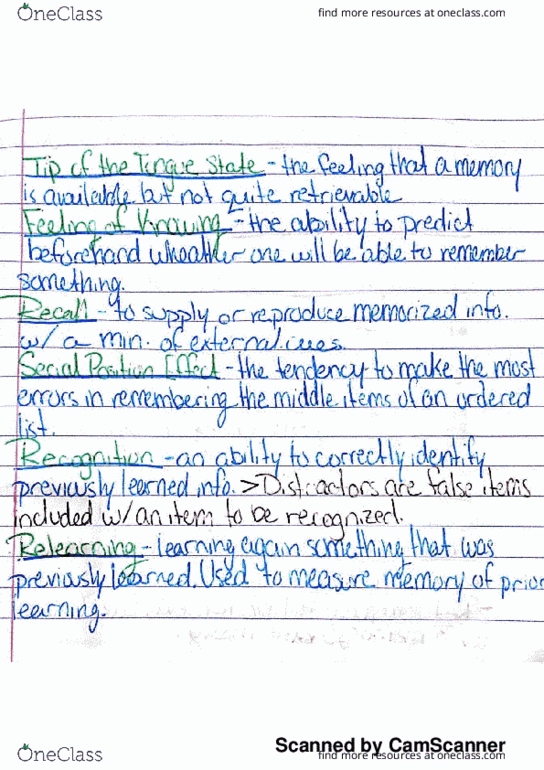 OneClass
find more resources at oneclass.com
Tip of the Tongue State - the feeling that a memory
is available but not quite retrievable
Feeling of Knowing - the ability to predict
beforehand wheather one will be able to remember
something.
Recall - to supply or reproduce memorized info.
w/ a min. of external cues.
Serial Position Effect - the tendency to make the most
errors in remembering the middle items of an ordered
list.
Recognition - an ability to correctly identify
previously learned info. > Distractors are false items
included w/ an item to be recognized.
Relearning - learning again something that was
previously learned. Used to measure memory of prior
learning.
Scanned by CamScanner
OneClass
find more resources at oneclass.com